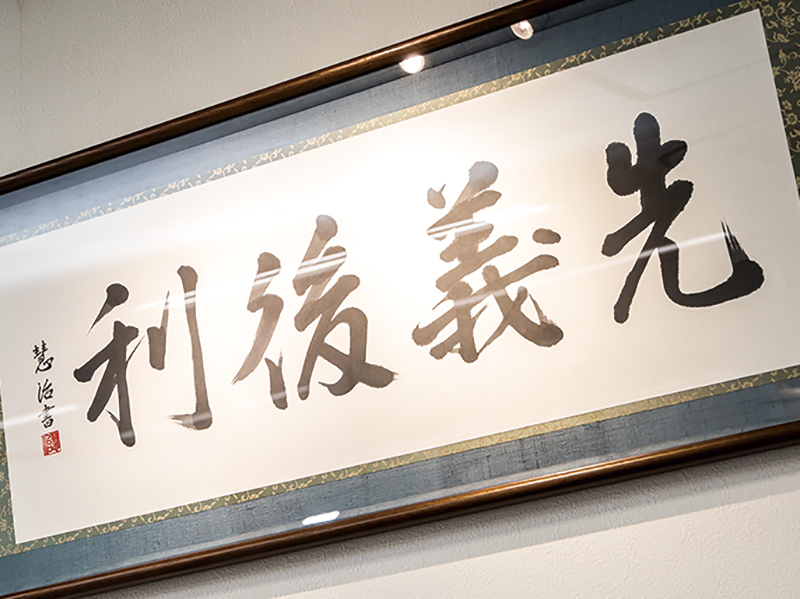 先義後利
慧治書